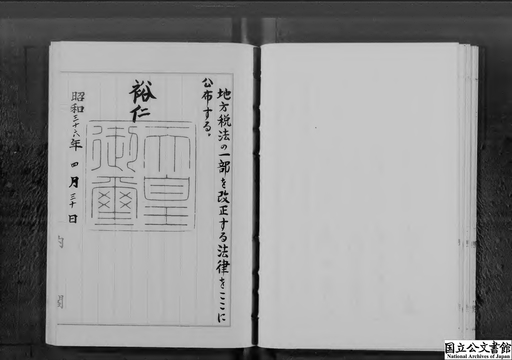 地方税法の一部を改正する法律をここに
公布する。
裕仁
天皇
御璽
昭和三十六年四月三十日
国立公文書館
National Archives of Japan